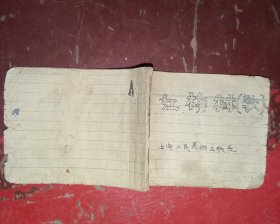 红柳村(软)
上海人民美术出版社